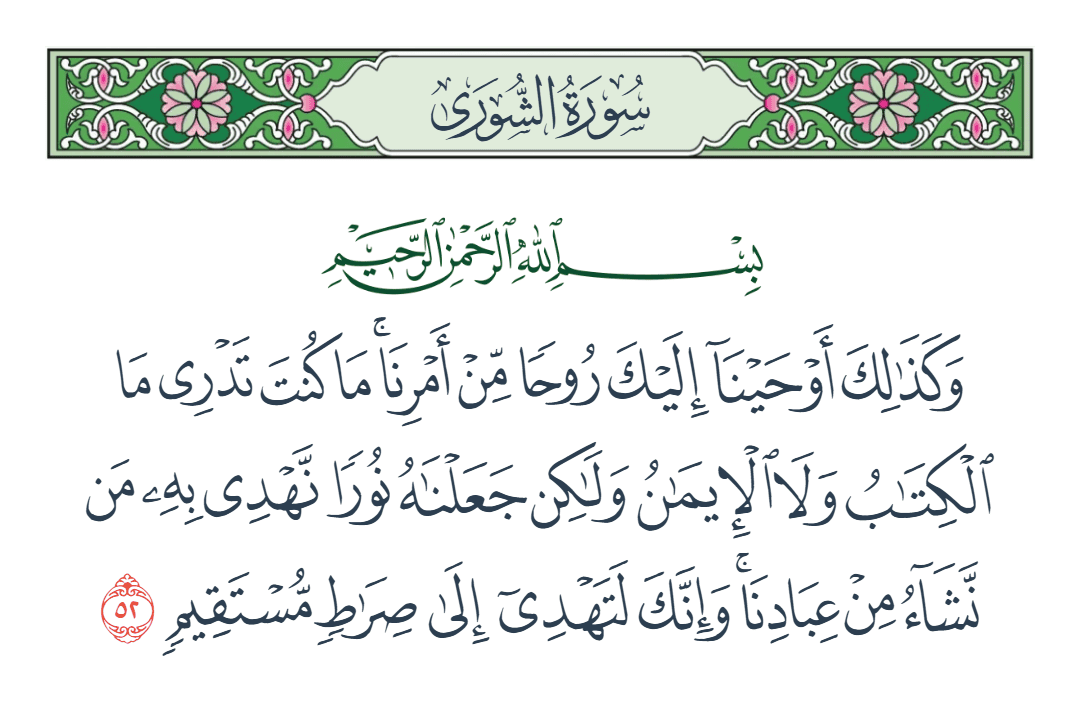 سُورَةُ الشُّورَىٰ
بِسْمِ ٱللَّهِ ٱلرَّحْمَٰنِ ٱلرَّحِيمِ
وَكَذَٰلِكَ أَوْحَيْنَآ إِلَيْكَ رُوحًا مِّنْ أَمْرِنَا ۚ مَا كُنتَ تَدْرِى مَا
ٱلْكِتَٰبُ وَلَا ٱلْإِيمَٰنُ وَلَٰكِن جَعَلْنَٰهُ نُورًا نَّهْدِى بِهِۦ مَن
نَّشَآءُ مِنْ عِبَادِنَا ۚ وَإِنَّكَ لَتَهْدِىٓ إِلَىٰ صِرَٰطٍ مُّسْتَقِيمٍ ٥٢